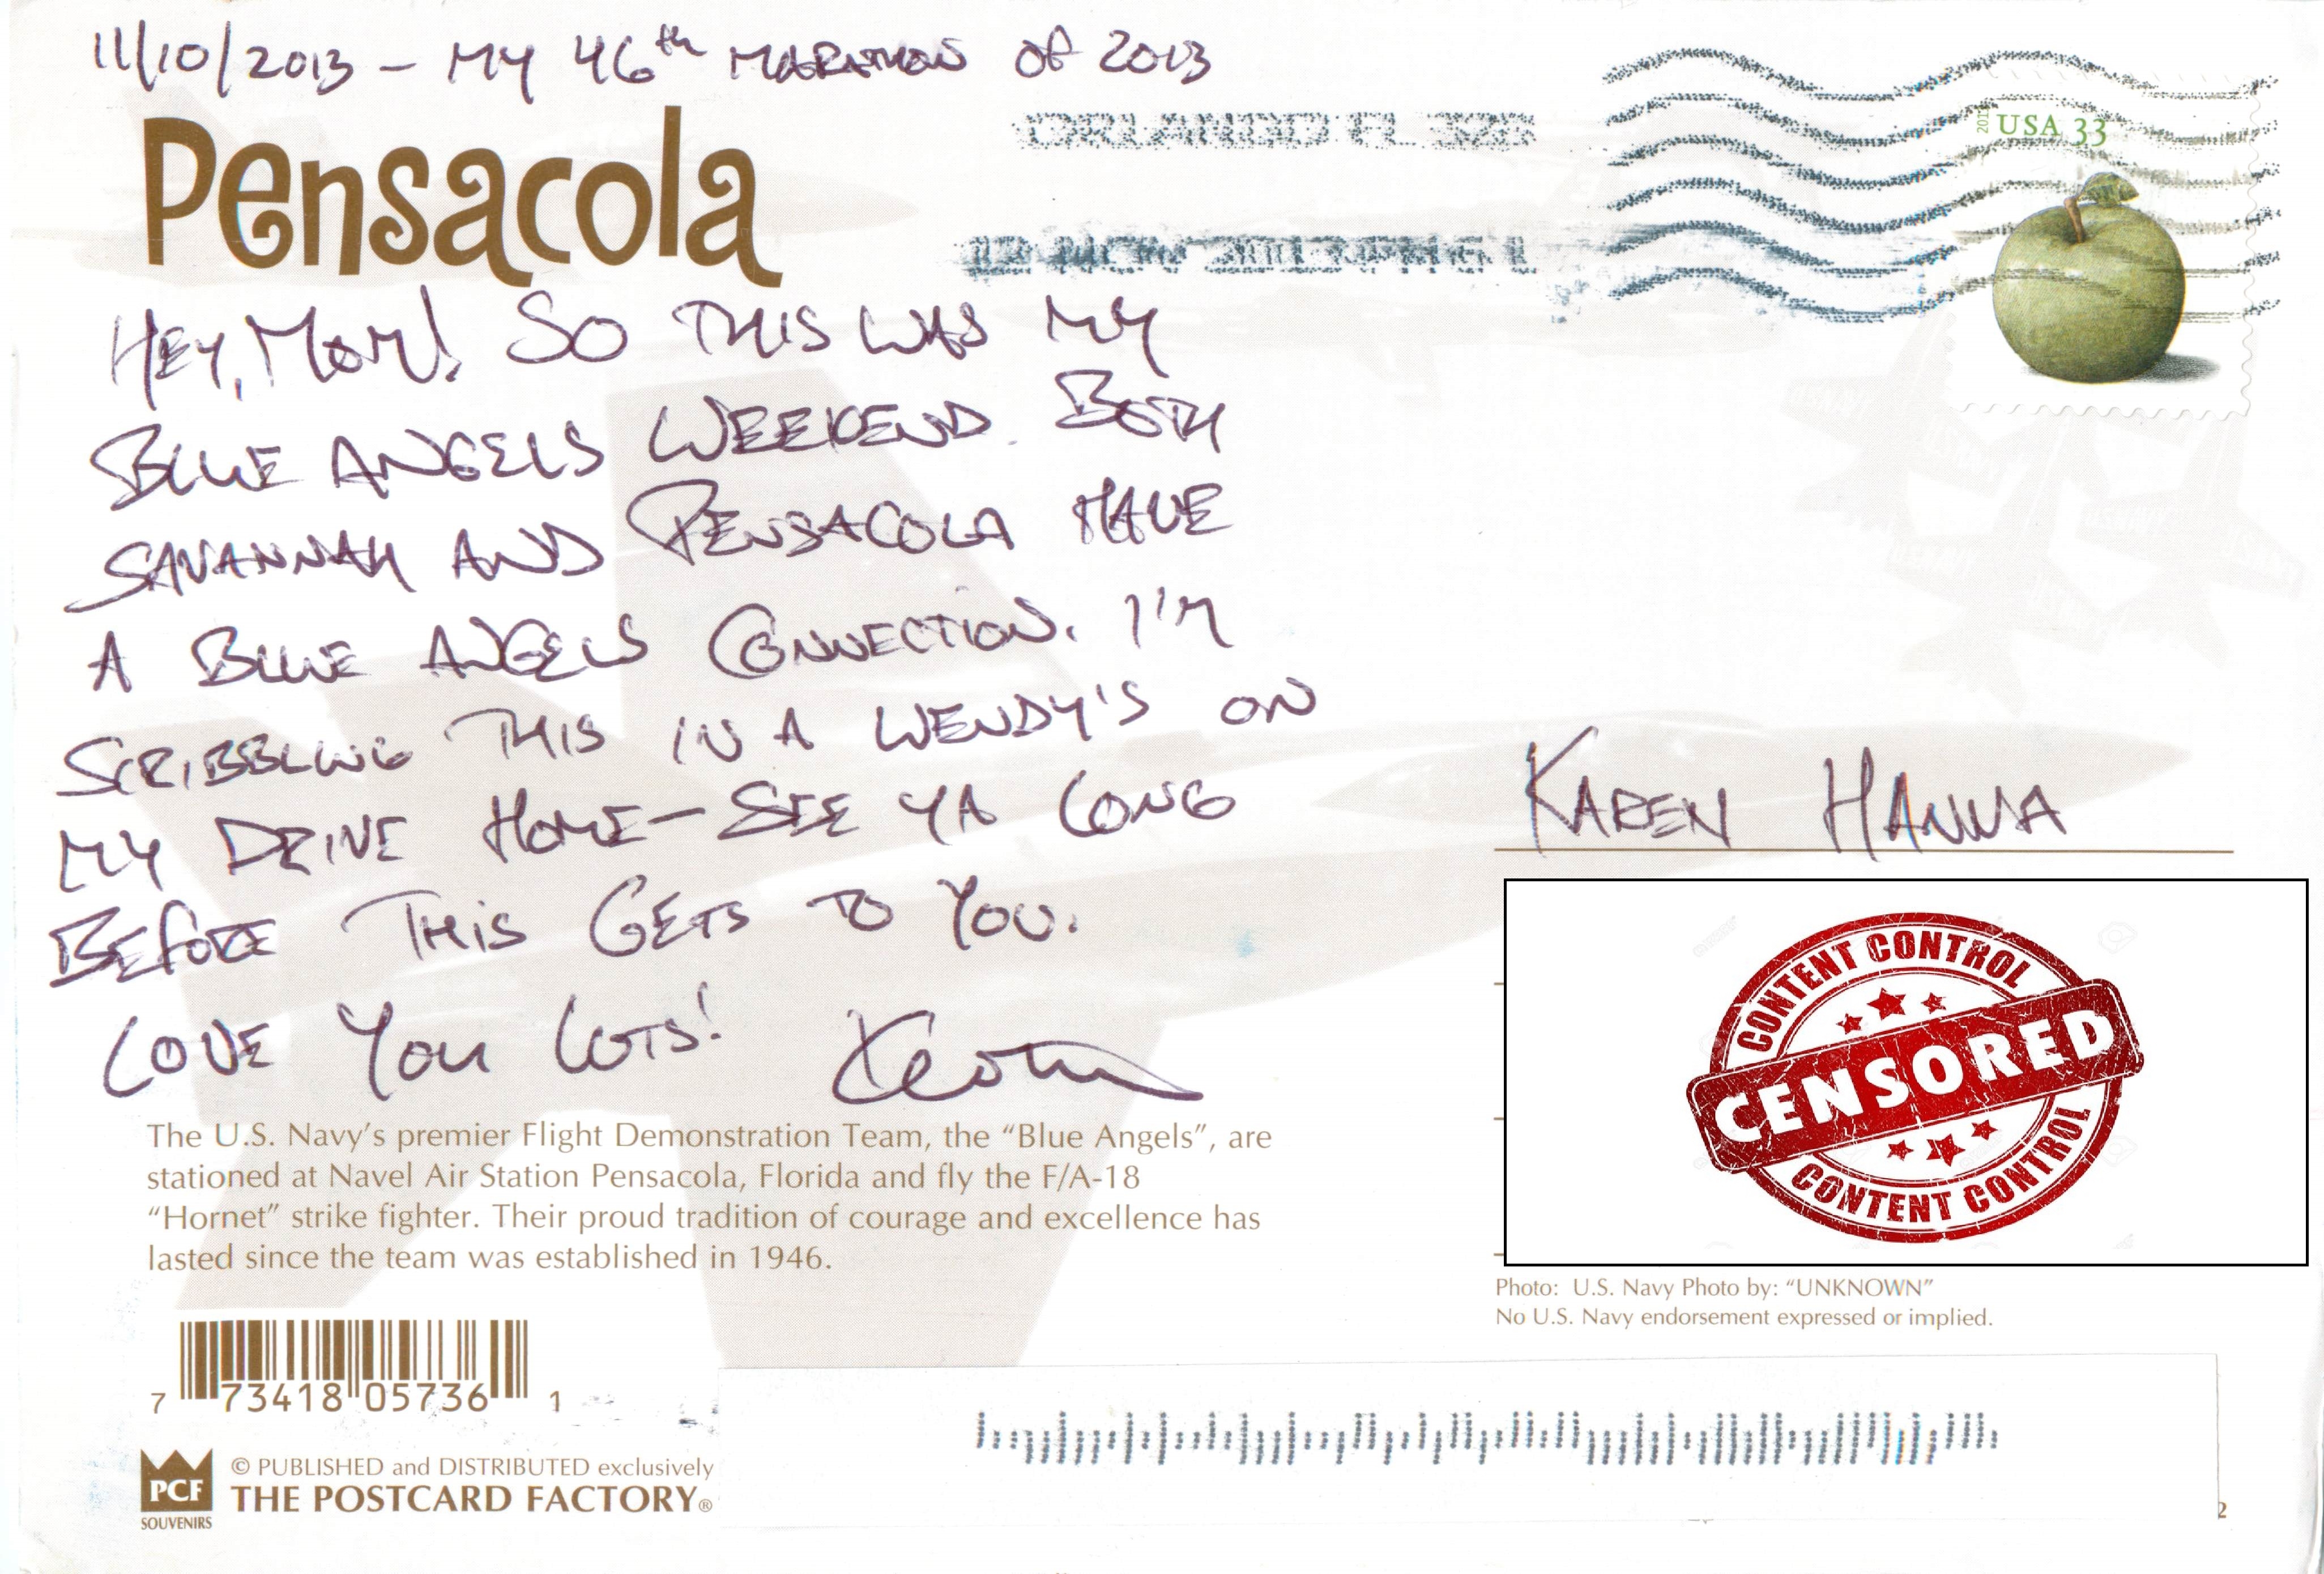 11/10/2013 - MY 46th MARATHON OF 2013
Pensacola
ORLANDO FL 328
12 NOV 2013 PM 6 L
2013 USA 33
HEY, MOM! SO THIS WAS MY
BLUE ANGELS WEEKEND. BOTH
SAVANNAH AND PENSACOLA HAVE
A BLUE ANGELS CONNECTION. I'M
SCRIBBLING THIS IN A WENDY'S ON
MY DRIVE HOME - SEE YA LONG
BEFORE THIS GETS TO YOU.
LOVE YOU LOTS!
KAREN HANNA
CONTENT CONTROL
CENSORED
CONTENT CONTROL
The U.S. Navy's premier Flight Demonstration Team, the "Blue Angels", are
stationed at Navel Air Station Pensacola, Florida and fly the F/A-18
"Hornet" strike fighter. Their proud tradition of courage and excellence has
lasted since the team was established in 1946.
Photo: U.S. Navy Photo by: "UNKNOWN"
No U.S. Navy endorsement expressed or implied.
7 73418 05736 1
PCF
SOUVENIRS
© PUBLISHED and DISTRIBUTED exclusively
THE POSTCARD FACTORY®
2